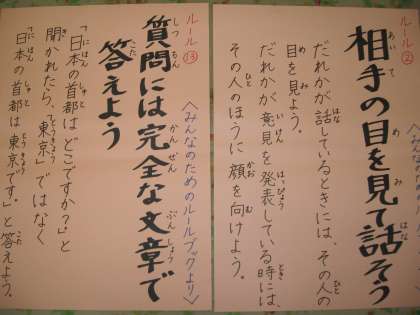 ルール②
相手の目を見て話そう
だれかが話しているときには、その人の
目を見よう。
だれかが意見を発表している時には、
その人のほうに顔を向けよう。
ルール⑬
質問には完全な文章で
答えよう
〈みんなのためのルールブックより〉
「日本の首都はどこですか?」と
聞かれたら、「東京」ではなく
「日本の首都は東京です。」と答えよう。